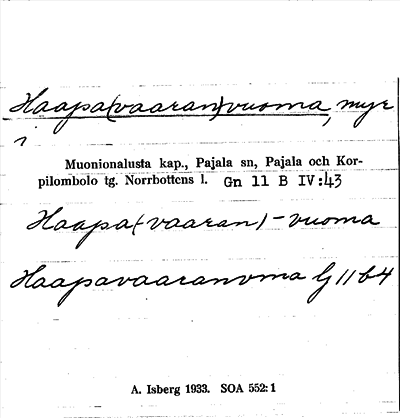 Haapa(vaaran)vuoma, myr
i
Muonionalusta kap., Pajala sn, Pajala och Kor-
pilombolo tg. Norrbottens l. Gn 11 B IV:43
Haapa(-vaaran)-vuoma
Haapavaaranvma Lj 11 b4
A. Isberg 1933. SOA 552:1